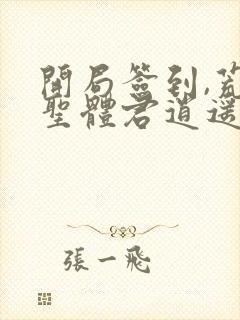 開局簽到,荒
聖體君逍遙
張一飛